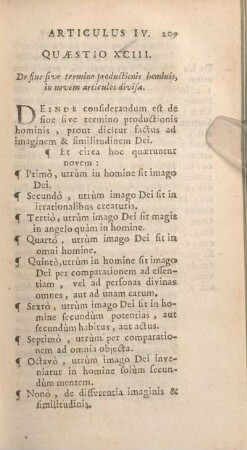 ARTICULUS IV. 209
QUÆSTIO XCIII.
De fine sive termino productionis hominis,
in novem articulos divisa.
DEINDE considerandum est de
fine sive termino productionis
hominis, prout dicitur factus ad
imaginem & similitudinem Dei.
¶ Et circa hoc quæruntur
novem:
¶ Primò, utrùm in homine sit imago
Dei.
¶ Secundò, utrùm imago Dei sit in
irrationalibus creaturis.
¶ Tertiò, utrùm imago Dei sit magis
in angelo quàm in homine.
¶ Quartò, utrùm imago Dei sit in
omni homine.
¶ Quintò, utrùm in homine sit imago
Dei per comparationem ad essen-
tiam, vel ad personas divinas
omnes, aut ad unam earum.
¶ Sextò, utrùm imago Dei sit in ho-
mine secundùm potentias, aut
secundùm habitus, aut actus.
¶ Septimò, utrùm per comparatio-
nem ad omnia objecta.
¶ Octavò, utrùm imago Dei inve-
niatur in homine solùm secun-
dùm mentem.
¶ Nonò, de differentia imaginis &
similitudinis.